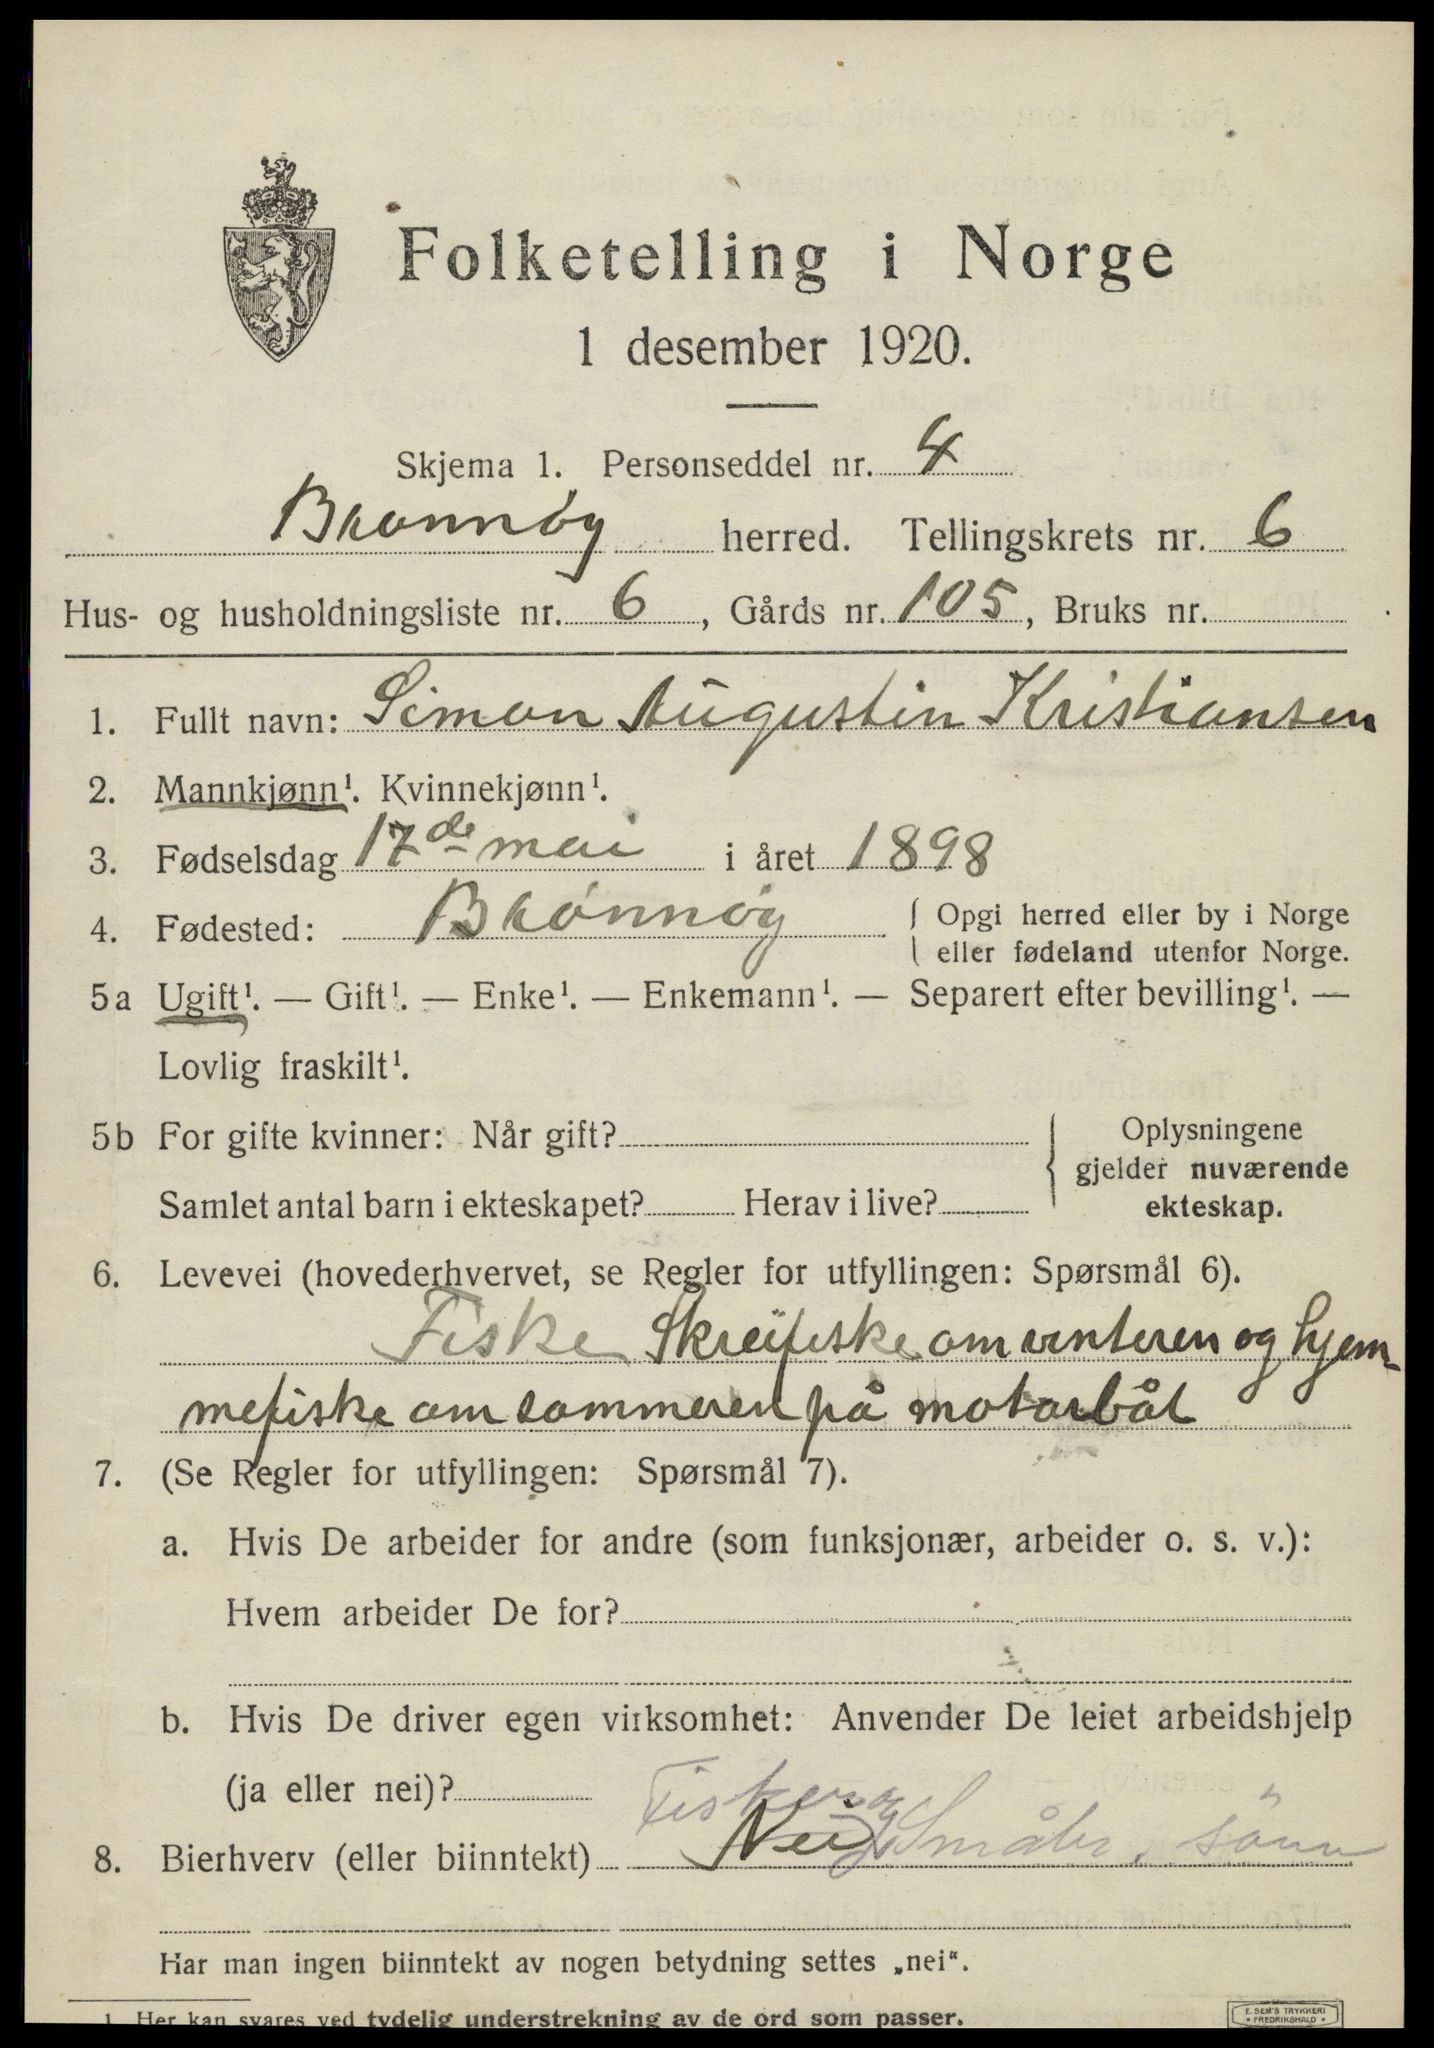 Folketelling i Norge
1 desember 1920.
Skjema 1. Personseddel nr. 4
Brønnøy herred. Tellingskrets nr. 6
Hus- og husholdningsliste nr. 6, Gårds nr. 105, Bruks nr.
1. Fullt navn: Simon Augustin Kristiansen
2. Mannkjønn¹. Kvinnekjønn¹.
3. Fødselsdag 17de mai i året 1898
4. Fødested: Brønnøy { Opgi herred eller by i Norge
eller fødeland utenfor Norge.
5a Ugift¹. — Gift¹. — Enke¹. — Enkemann¹. — Separert efter bevilling¹. —
Lovlig fraskilt¹.
5b For gifte kvinner: Når gift?
Samlet antal barn i ekteskapet? Herav i live?
Oplysningene
gjelder nuværende
ekteskap.
6. Levevei (hovederhvervet, se Regler for utfyllingen: Spørsmål 6).
Fiske Skreifiske om vinteren og hjem-
mefiske om sommeren på motorbåt
7. (Se Regler for utfyllingen: Spørsmål 7).
a. Hvis De arbeider for andre (som funksjonær, arbeider o. s. v.):
Hvem arbeider De for?
b. Hvis De driver egen virksomhet: Anvender De leiet arbeidshjelp
(ja eller nei)?
Fisker og Småbr. sønn
8. Bierhverv (eller biinntekt) Nei
Har man ingen biinntekt av nogen betydning settes „nei“.
1. Her kan svares ved tydelig understrekning av de ord som passer.
E. SEM'S TRYKKERI
* FREDRIKSHALD *